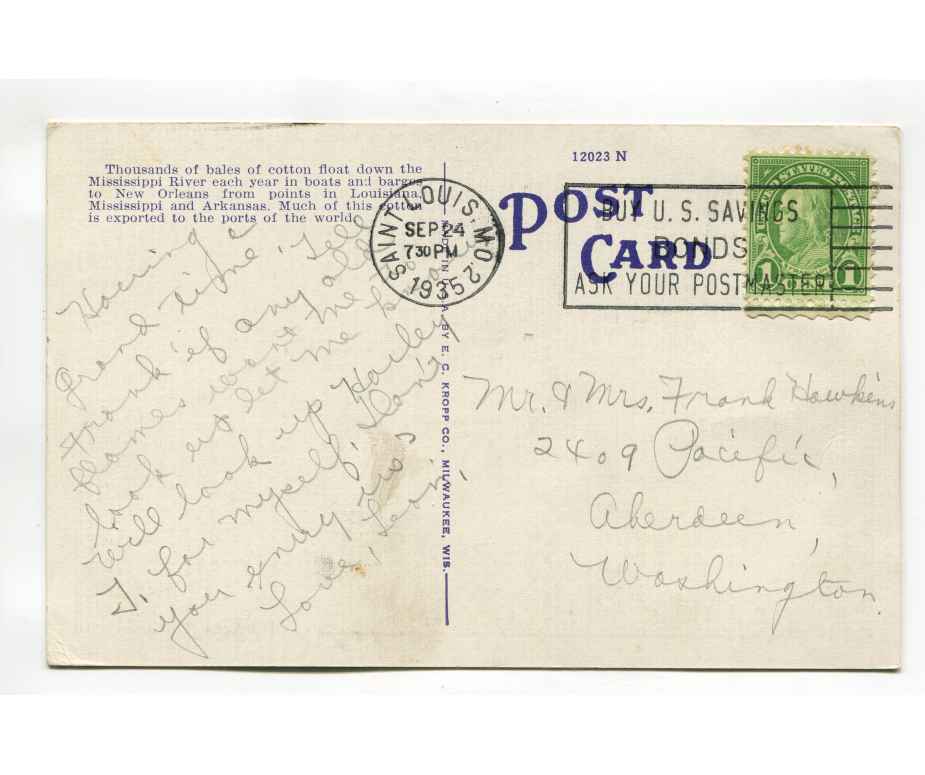 Thousands of bales of cotton float down the
Mississippi River each year in boats and barges
to New Orleans from points in Louisiana,
Mississippi and Arkansas. Much of this cotton
is exported to the ports of the world.
12023 N
POST
CARD
SAINT LOUIS, MO. 2
SEP 24
7 30 PM
1935
BUY U. S. SAVINGS
BONDS
ASK YOUR POSTMASTER
UNITED STATES POSTAGE
1 1
A BY E. C. KROPP CO., MILWAUKEE, WIS.
Having a
grand time. Tell
Frank if any old
flames want me
look up let me k
will look up Harley
I. for myself. Don't
you envy us
Love, Leon
Mr. & Mrs. Frank Hawkins
2409 Pacific,
Aberdeen,
Washington.